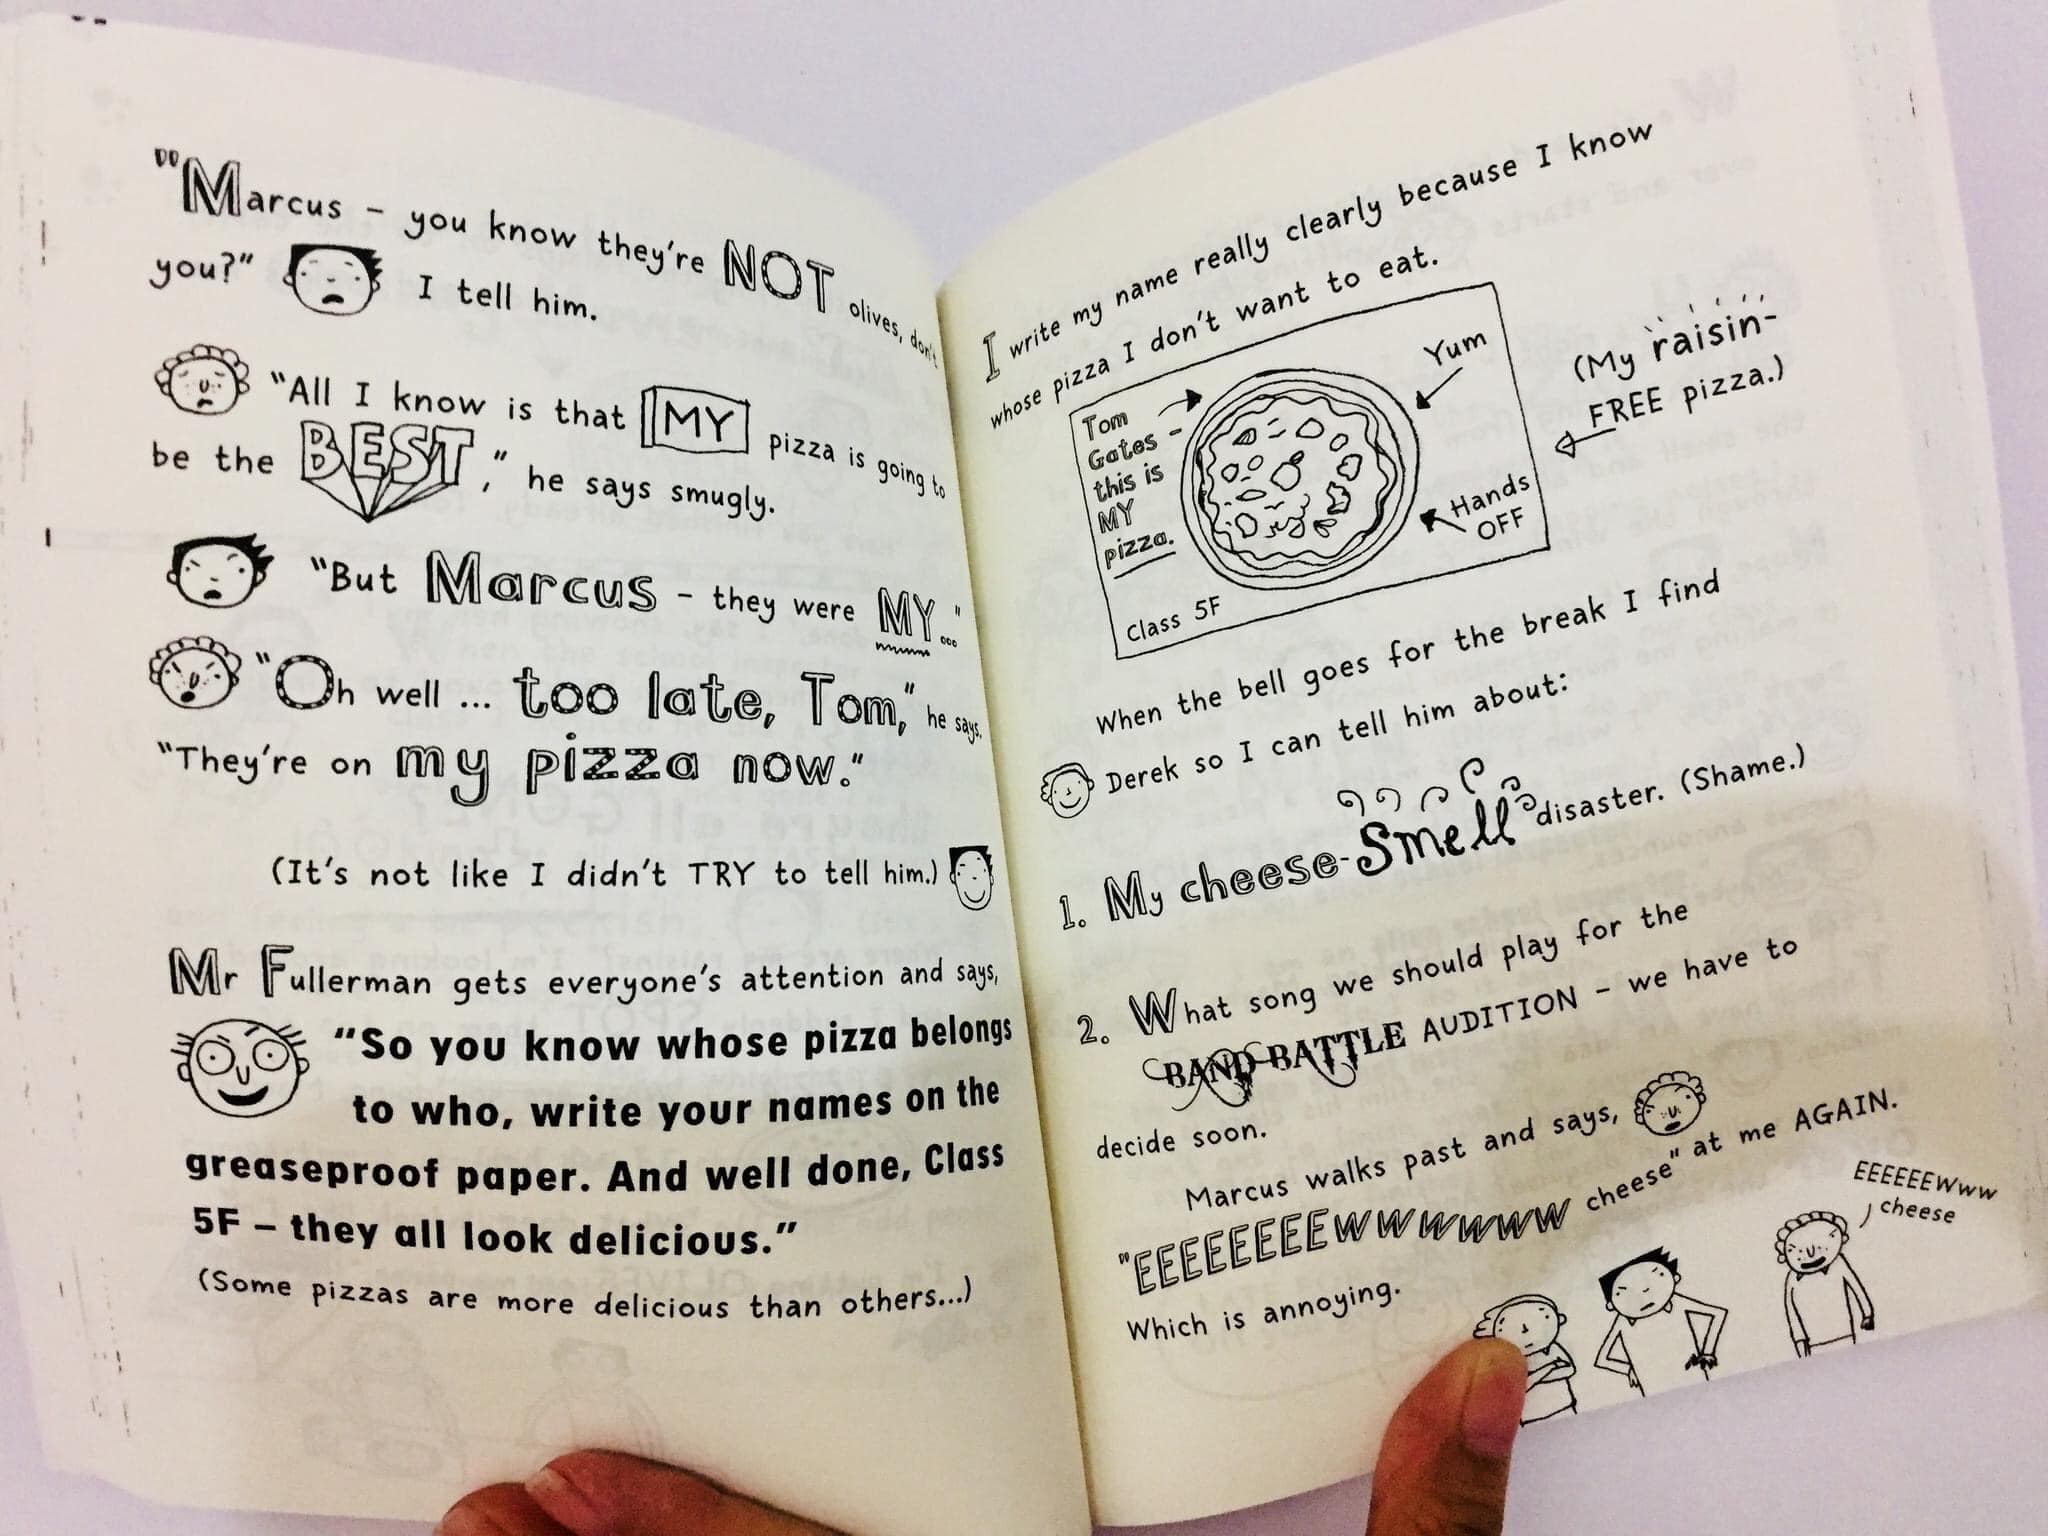 "Marcus – you know they're NOT olives, don't
you?" I tell him.
"All I know is that MY pizza is going to
be the BEST," he says smugly.
"But Marcus – they were MY..."
"Oh well ... too late, Tom," he says.
"They're on my pizza now."
(It's not like I didn't TRY to tell him.)
Mr Fullerman gets everyone's attention and says,
"So you know whose pizza belongs
to who, write your names on the
greaseproof paper. And well done, Class
5F – they all look delicious."
(Some pizzas are more delicious than others...)
I write my name really clearly because I know
whose pizza I don't want to eat.
Tom
Gates –
this is
MY
pizza.
Class 5F
Yum
Hands
OFF
(My raisin-
FREE pizza.)
When the bell goes for the break I find
Derek so I can tell him about:
1. My cheese-smell disaster. (Shame.)
2. What song we should play for the
BAND BATTLE AUDITION – we have to
decide soon.
Marcus walks past and says,
"EEEEEEEEwwwwwww cheese" at me AGAIN.
Which is annoying.
EEEEEEWww
cheese